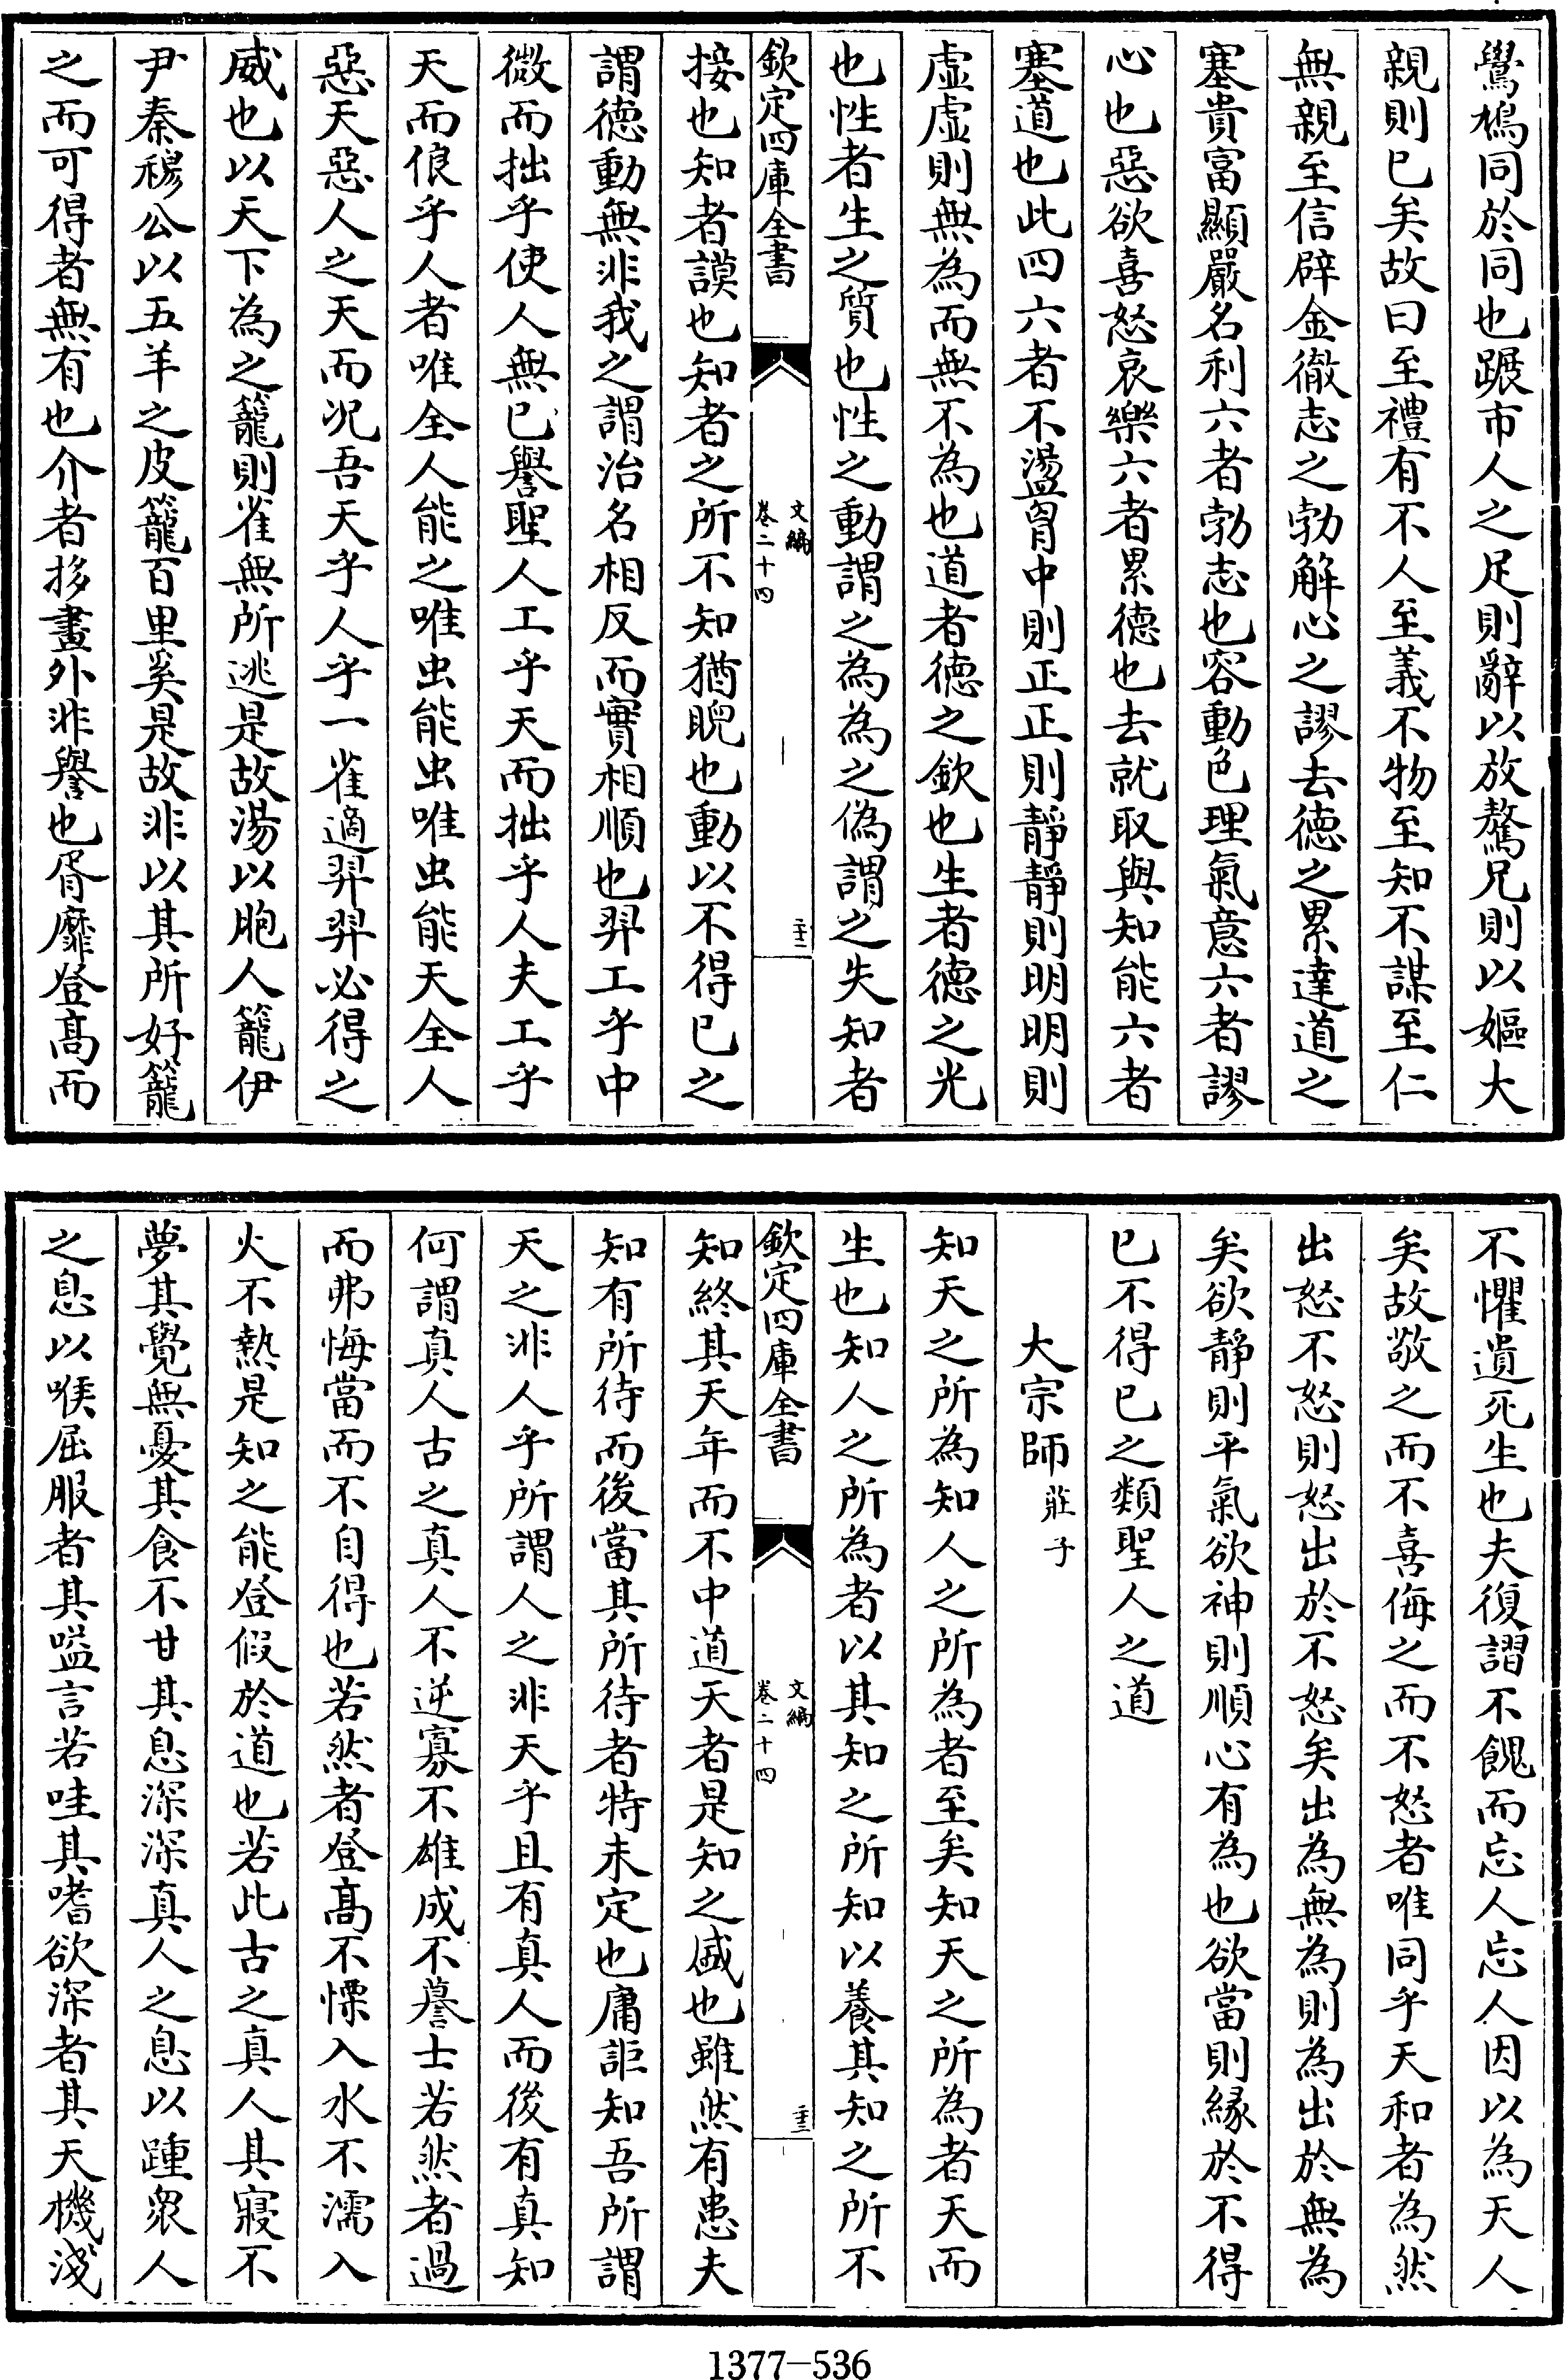 鷽鳩同於同也蹍市人之足則辭以放驁兄則以嫗大
親則已矣故曰至禮有不人至義不物至知不謀至仁
無親至信辟金徹志之勃解心之謬去德之累達道之
塞貴富顯嚴名利六者勃志也容動色理氣意六者謬
心也惡欲喜怒哀樂六者累德也去就取與知能六者
塞道也此四六者不盪胷中則正正則靜靜則明明則
虛虛則無為而無不為也道者德之欽也生者德之光
也性者生之質也性之動謂之為為之偽謂之失知者
欽定四庫全書
文編
卷二十四
接也知者謨也知者之所不知猶睨也動以不得已之
謂德動無非我之謂治名相反而實相順也羿工乎中
微而拙乎使人無已譽聖人工乎天而拙乎人夫工乎
天而俍乎人者唯全人能之唯虫能虫唯虫能天全人
惡天惡人之天而况吾天乎人乎一雀適羿羿必得之
威也以天下為之籠則雀無所逃是故湯以胞人籠伊
尹秦穆公以五羊之皮籠百里奚是故非以其所好籠
之而可得者無有也介者拸畫外非譽也胥靡登高而
不懼遺死生也夫復謵不餽而忘人忘人因以為天人
矣故敬之而不喜侮之而不怒者唯同乎天和者為然
出怒不怒則怒出於不怒矣出為無為則為出於無為
矣欲靜則平氣欲神則順心有為也欲當則緣於不得
已不得已之類聖人之道
大宗師 莊子
知天之所為知人之所為者至矣知天之所為者天而
生也知人之所為者以其知之所知以養其知之所不
欽定四庫全書
文編
卷二十四
知終其天年而不中道天者是知之盛也雖然有患夫
知有所待而後當其所待者特未定也庸詎知吾所謂
天之非人乎所謂人之非天乎且有真人而後有真知
何謂真人古之真人不逆寡不雄成不謩士若然者過
而弗悔當而不自得也若然者登高不慄入水不濡入
火不熱是知之能登假於道也若此古之真人其寢不
夢其覺無憂其食不甘其息深深真人之息以踵衆人
之息以喉屈服者其嗌言若哇其嗜欲深者其天機淺
1377—536